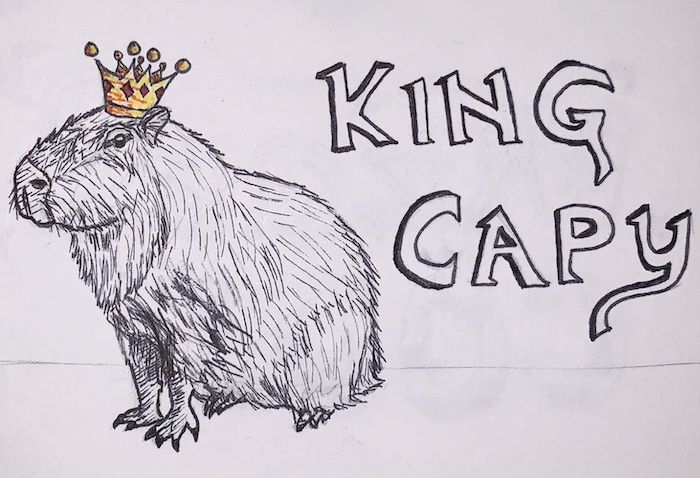 KING
CAPY